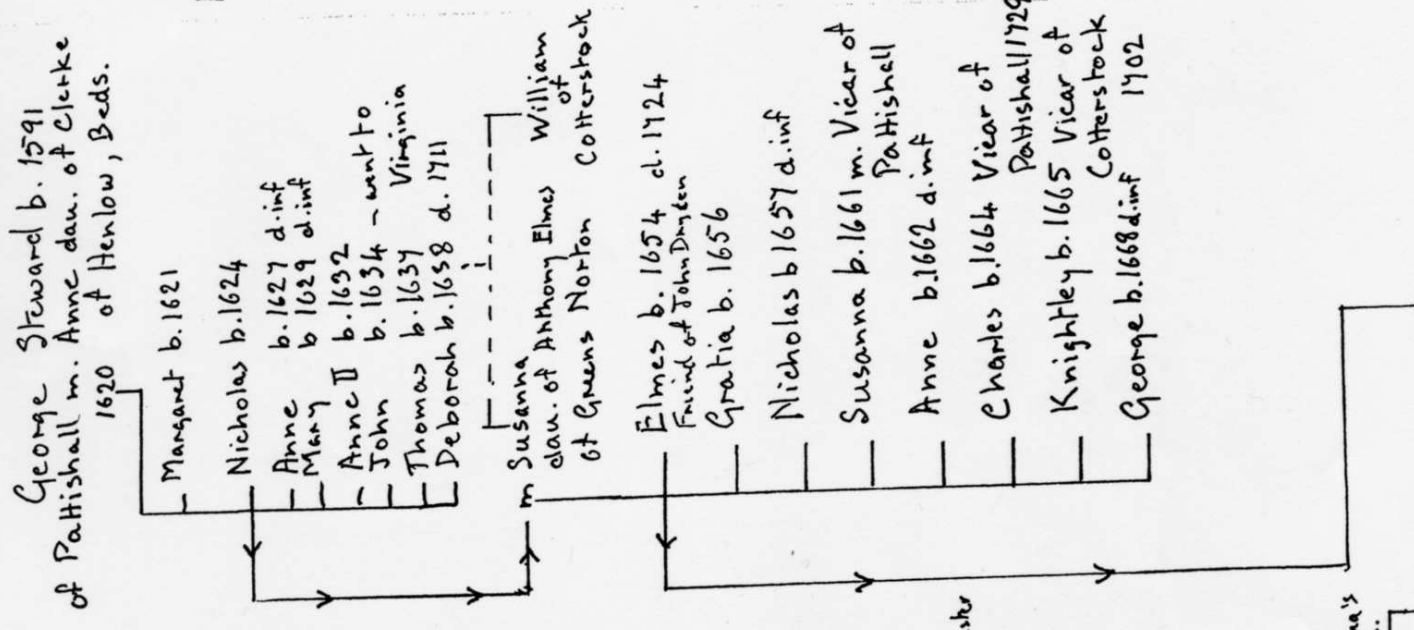 George Steward b. 1591
of Pattishall m. Anne dau. of Clerke
1620 of Henlow, Beds.
Margaret b. 1621
Nicholas b. 1624
Anne b. 1627 d.inf
Mary b 1629 d.inf
Anne II b. 1632
John b. 1634 – went to
Virginia
Thomas b. 1637
Deborah b. 1638 d. 1711
m Susanna
dau. of Anthony Elmes
of Greens Norton
William
of
Cotterstock
Elmes b. 1654 d. 1724
Friend of John Dryden
Gratia b. 1656
Nicholas b 1657 d.inf
Susanna b. 1661 m. Vicar of
Pattishall
Anne b. 1662 d.inf
Charles b. 1664 Vicar of
Pattishall 1729
Knightley b. 1665 Vicar of
Cotterstock
1702
George b. 1668 d.inf